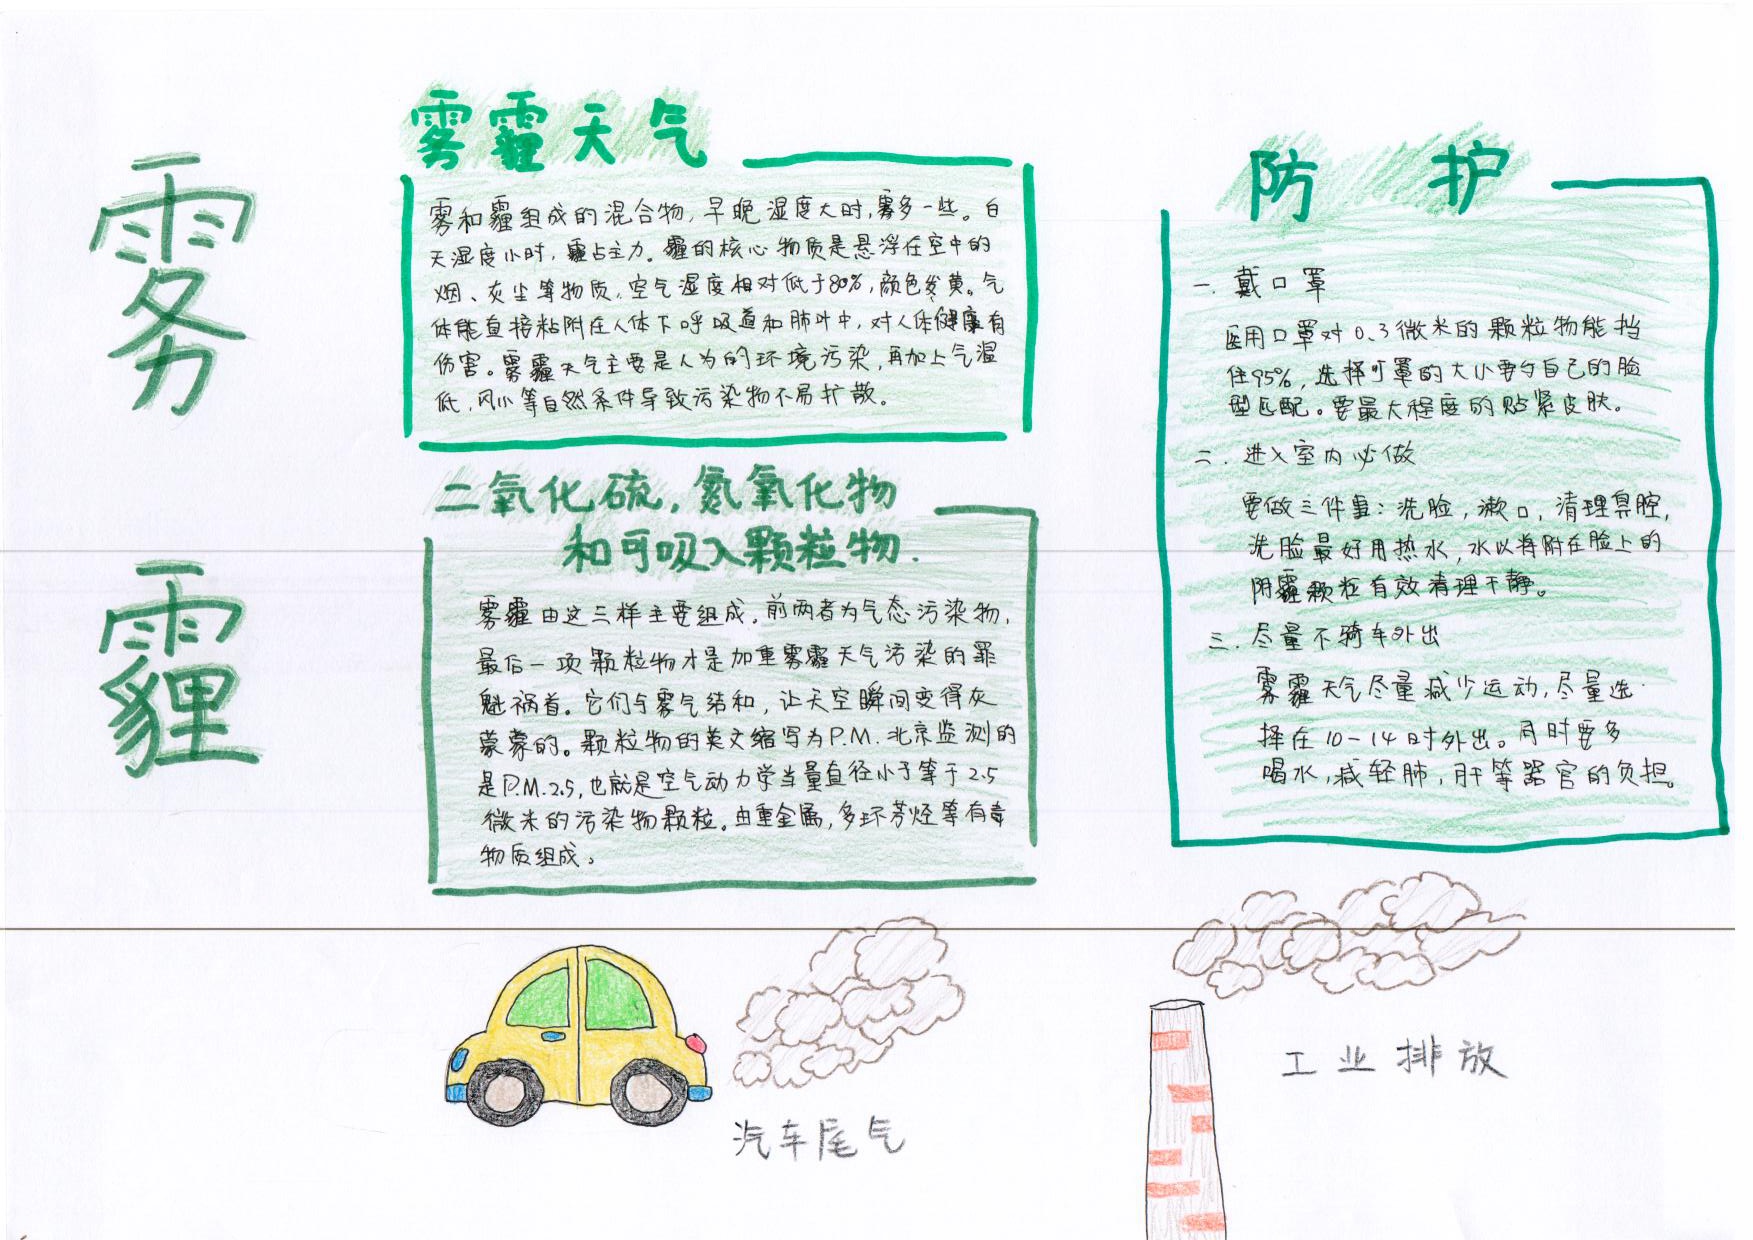 雾
霾
雾霾天气
雾和霾组成的混合物，早晚湿度大时，雾多一些。白
天湿度小时，霾占主力。霾的核心物质是悬浮在空中的
烟、灰尘等物质，空气湿度相对低于80%，颜色发黄。气
体能直接粘附在人体下呼吸道和肺叶中，对人体健康有
伤害。雾霾天气主要是人为的环境污染，再加上气温
低，风小等自然条件导致污染物不易扩散。
二氧化硫，氮氧化物
和可吸入颗粒物.
雾霾由这三样主要组成，前两者为气态污染物，
最后一项颗粒物才是加重雾霾天气污染的罪
魁祸首。它们与雾气结和，让天空瞬间变得灰
蒙蒙的。颗粒物的英文缩写为P.M.北京监测的
是P.M.2.5，也就是空气动力学当量直径小于等于2.5
微米的污染物颗粒。由重金属，多环芳烃等有毒
物质组成。
防护
一.戴口罩
医用口罩对0.3微米的颗粒物能挡
住95%，选择口罩的大小要与自己的脸
型匹配。要最大程度的贴紧皮肤。
二.进入室内必做
要做三件事：洗脸，漱口，清理鼻腔，
洗脸最好用热水，水以将附在脸上的
阴霾颗粒有效清理干静。
三.尽量不骑车外出
雾霾天气尽量减少运动，尽量选
择在10-14时外出。同时要多
喝水，减轻肺，肝等器官的负担。
汽车尾气
工业排放